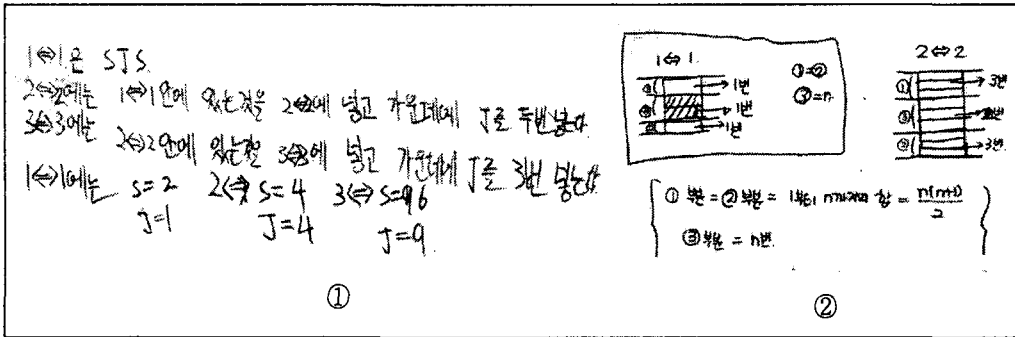 1⇔1은 SJS
2⇔2에는 1⇔1안에 있는것을 2⇔2에 넣고 가운데에 J를 두번 넣는다
3⇔3에는 2⇔2안에 있는것을 3⇔3에 넣고 가운데에 J를 3번 넣는다
1⇔1에는 S=2 2⇔ S=4 3⇔ S=6
J=1 J=4 J=9
①
1⇔1
① → 1번
③ → 1번
② → 1번
①=②
③=n
2⇔2
① → 3번
③
② → 3번
①부분=②부분= 1부터 n까지의 합 = n(n+1)/2
③부분 = n번
②